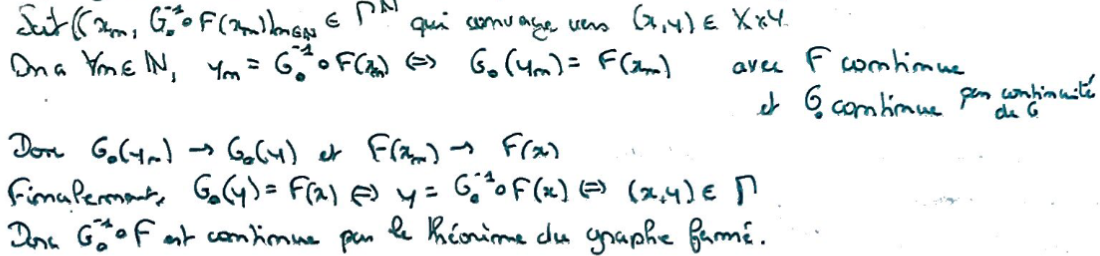 Soit ((xₙ, G₀⁻¹∘F(xₙ))ₙ∈ℕ ∈ Γ^ℕ qui converge vers (x,y) ∈ X×Y.
On a ∀n∈ℕ, yₙ = G₀⁻¹∘F(xₙ) ⇔ G₀(yₙ) = F(xₙ) avec F continue
et G₀ continue par continuité de G
Donc G₀(yₙ) → G₀(y) et F(xₙ) → F(x)
Finalement, G₀(y) = F(x) ⇔ y = G₀⁻¹∘F(x) ⇔ (x,y) ∈ Γ
Donc G₀⁻¹∘F est continue par le théorème du graphe fermé.